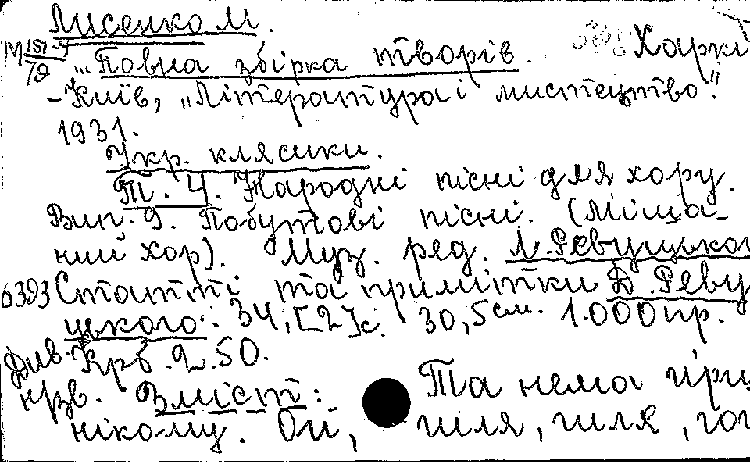 Лисенко М.
М 151-9/79 „Повна збірка творів. Харкі
-Київ, „Література і мистецтво".
1931.
Укр. клясики.
Т. 4. Народні пісні для хору.
Вип. 9. Побутові пісні. (Міша-
ний хор). Муз. ред. Л. Ревуцьког
6393 Статті та примітки Д. Реву
цького. 34,[2]с. 30,5см. 1.000пр.
Крб. 2.50.
Див.
нрзв. Зміст: Та нема гірш
нікому. Ой, гиля, гиля, гог